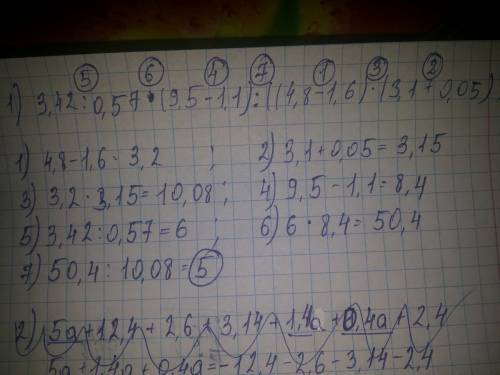 5 6 4 7 1 3 2
1) 3,42:0,57•(9,5-1,1):((4,8-1,6)·(3,1+0,05)
1) 4,8-1,6=3,2 ; 2) 3,1+0,05=3,15
3) 3,2·3,15=10,08; 4) 9,5-1,1=8,4
5) 3,42:0,57=6 ; 6) 6·8,4=50,4
7) 50,4:10,08=5
2) 5a+12,4+2,6+3,14+1,4a+0,4a+2,4
5a+1,4a+0,4a=-12,4-2,6-3,14-2,4